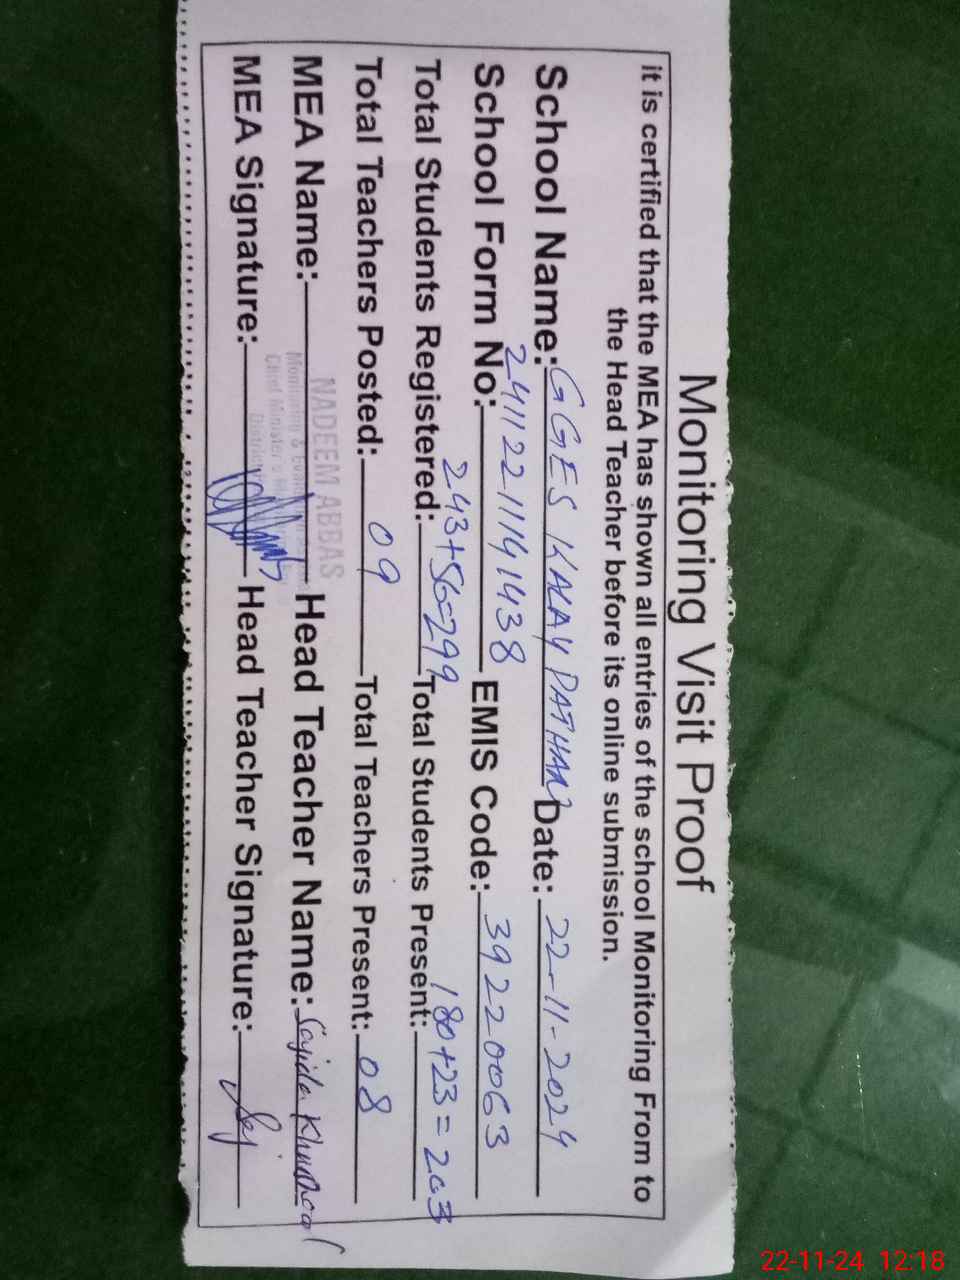 Monitoring Visit Proof
it is certified that the MEA has shown all entries of the school Monitoring From to
the Head Teacher before its online submission.
School Name: GGES KALAY PATHAN Date: 22-11-2024
School Form No: 241122111491438 EMIS Code: 39220063
Total Students Registered: 243+56=299 Total Students Present: 180+23=203
Total Teachers Posted: 09 Total Teachers Present: 08
MEA Name: NADEEM ABBAS Head Teacher Name: Sajida
Monitoring &
Chief Minister's
District
MEA Signature: Head Teacher Signature:
22-11-24 12:18